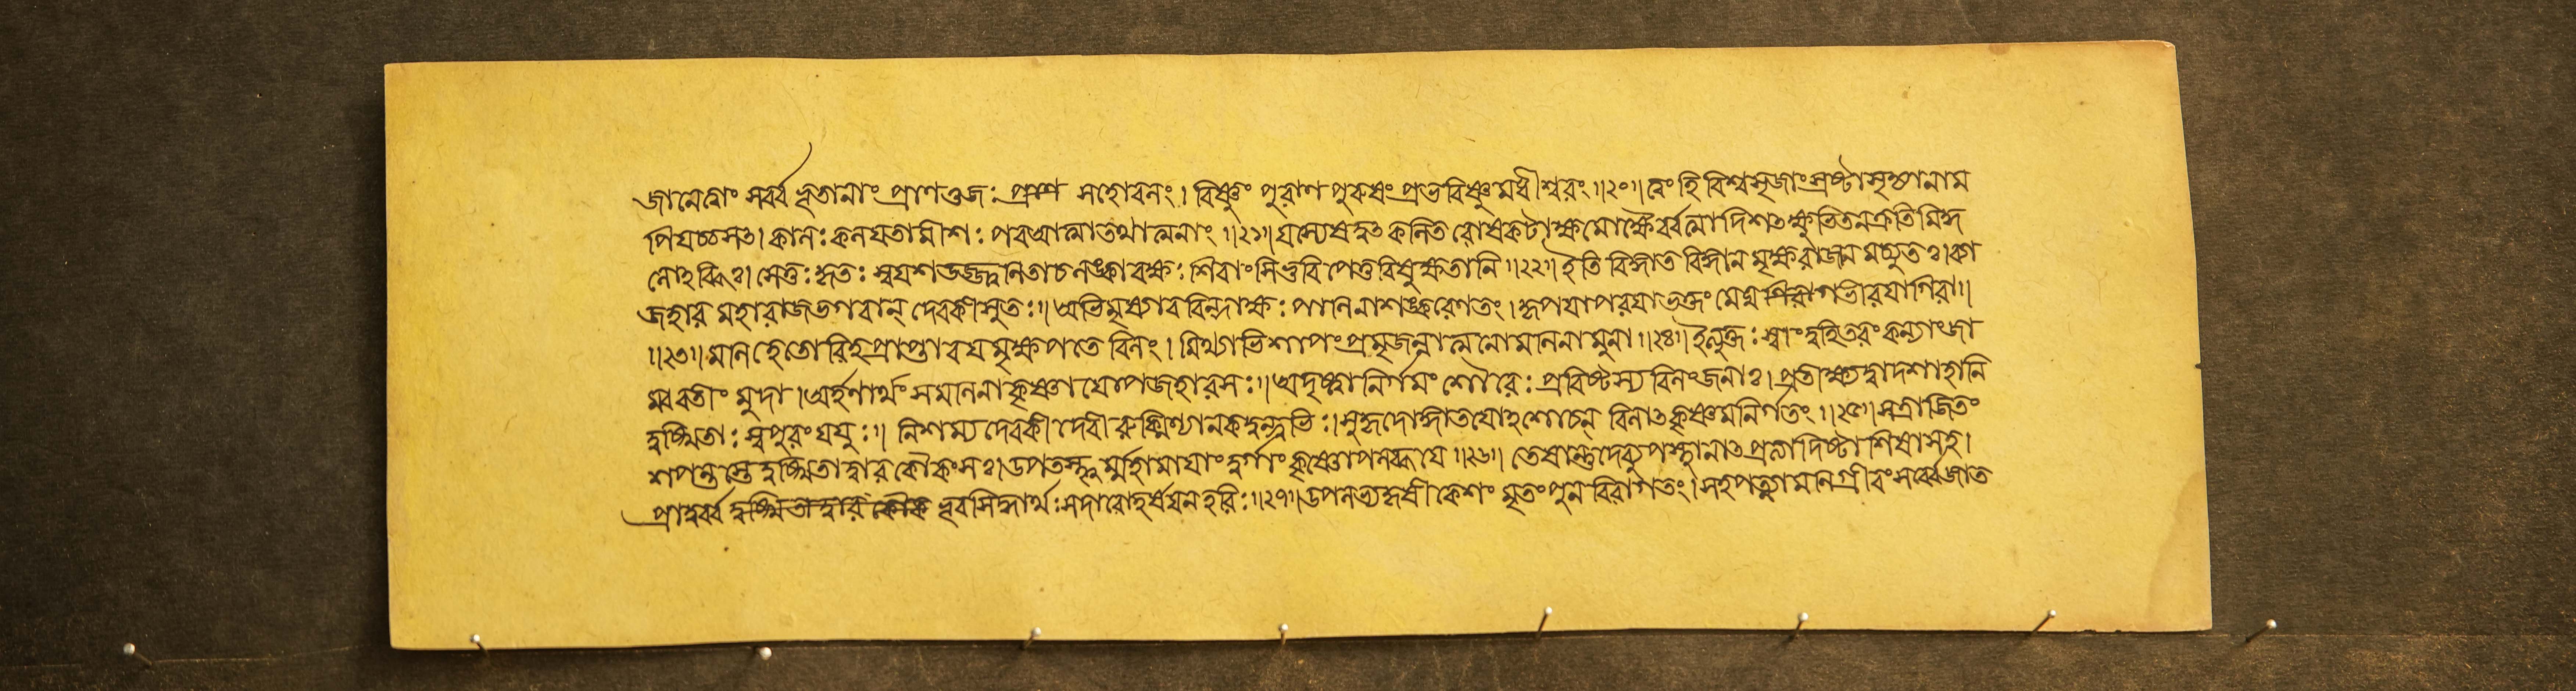 জানেত্বাং সর্ব্বভূতানাং প্রাণওজঃ প্রাণ সহোবলং। বিষ্ণুং পুরাণপুরুষং প্রভবিষ্ণুমধীশ্বরং॥২০॥ ত্বং হি বিশ্বসৃজাংস্রষ্টাসৃজ্যানাম
পিযচ্চসৎ। কালঃকলযতামীশঃ পরআত্মাতথাত্মনাং॥২১॥ যস্যেষদুৎকলিতরোষকটাক্ষমোক্ষৈর্বর্ত্মাদিশৎক্ষুভিতনক্রতিমিঙ্গ
লোঽব্ধিঃ। সেতুঃকৃতঃ স্বযশউজ্জ্বলিতাচলঙ্কারক্ষঃশিরাংসিভুবিপেতুরিষুক্ষতানি॥২২॥ ইতি বিজ্ঞাত বিজ্ঞানমৃক্ষরাজানমচ্যুতঃ।ব্যা
জহার মহারাজভগবান্ দেবকীসুতঃ॥ অভিমৃষ্যারবিন্দাক্ষঃ পাণিনাশঙ্করেণতং। কৃপযাপরযাভক্তং মেঘগম্ভীরযাগিরা॥
॥২৩॥ মনিহেতোরিহপ্রাপ্তাবযমৃক্ষপতে বিলং। মিথ্যাভিশাপংপ্রমৃজন্নাত্মনোমণিনামুনা॥২৪॥ ইত্যুক্তঃ স্বাংদুহিতরং কন্যাংজা
ম্ববতীং মুদা।অর্হণার্থং সমণিনাকৃষ্ণাযোপজহারসঃ॥ অদৃষ্ট্বানির্গমং শৌরেঃ প্রবিষ্টস্য বিলংজনাঃ। প্রতীক্ষ্যদ্বাদশাহানি
দুঃখিতাঃ স্বপুরংযযুঃ॥ নিশম্যদেবকী দেবী রুক্মিণ্যানকদুন্দুভিঃ। সুহৃদোজ্ঞাতযোঽশোচন্ বিলাৎকৃষ্ণমনির্গতং॥২৫॥ সত্রাজিতং
শপন্তস্তে দুঃখিতাদ্বারকৌকসঃ। উপতস্থুর্ম্মহামাযাং দুর্গাং কৃষ্ণোপলব্ধযে॥২৬॥ তেষান্তুদেব্যুপস্থানাৎপ্রত্যাদিষ্টাশিষাসহ।
প্রাদুর্বভূবসিদ্ধার্থঃসদারোহর্ষযনহরিঃ॥২৭॥ উপলভ্যহৃষীকেশং মৃতংপুনরিবাগতং। সহপত্ন্যামণিগ্রীবংসর্ব্বেজাত